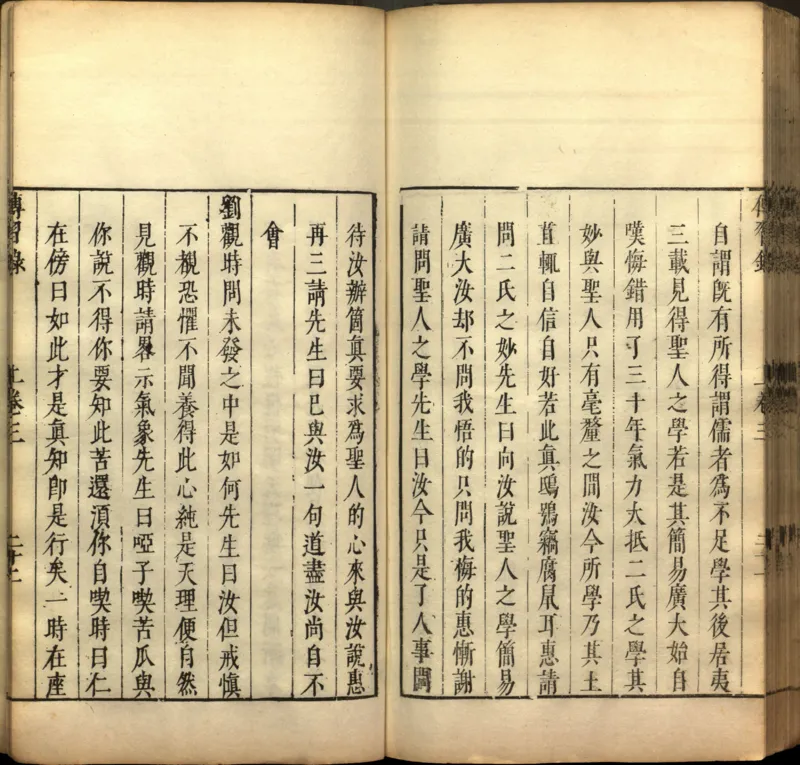 自謂旣有所得謂儒者爲不足學其後居夷
三載見得聖人之學若是其簡易廣大始自
嘆悔錯用了三十年氣力大抵二氏之學其
妙與聖人只有毫釐之間汝今所學乃其土
苴輒自信自好若此眞鴟鴞竊腐鼠耳惠請
問二氏之妙先生曰向汝說聖人之學簡易
廣大汝却不問我悟的只問我悔的惠慚謝
請問聖人之學先生曰汝今只是了人事問
待汝辦箇眞要求爲聖人的心來與汝說惠
再三請先生曰已與汝一句道盡汝尚自不
會
劉觀時問未發之中是如何先生曰汝但戒愼
不覩恐懼不聞養得此心純是天理便自然
見觀時請畧示氣象先生曰啞子喫苦瓜與
你說不得你要知此苦還須你自喫時曰仁
在傍曰如此才是眞知卽是行矣一時在座
傳習錄 上卷三